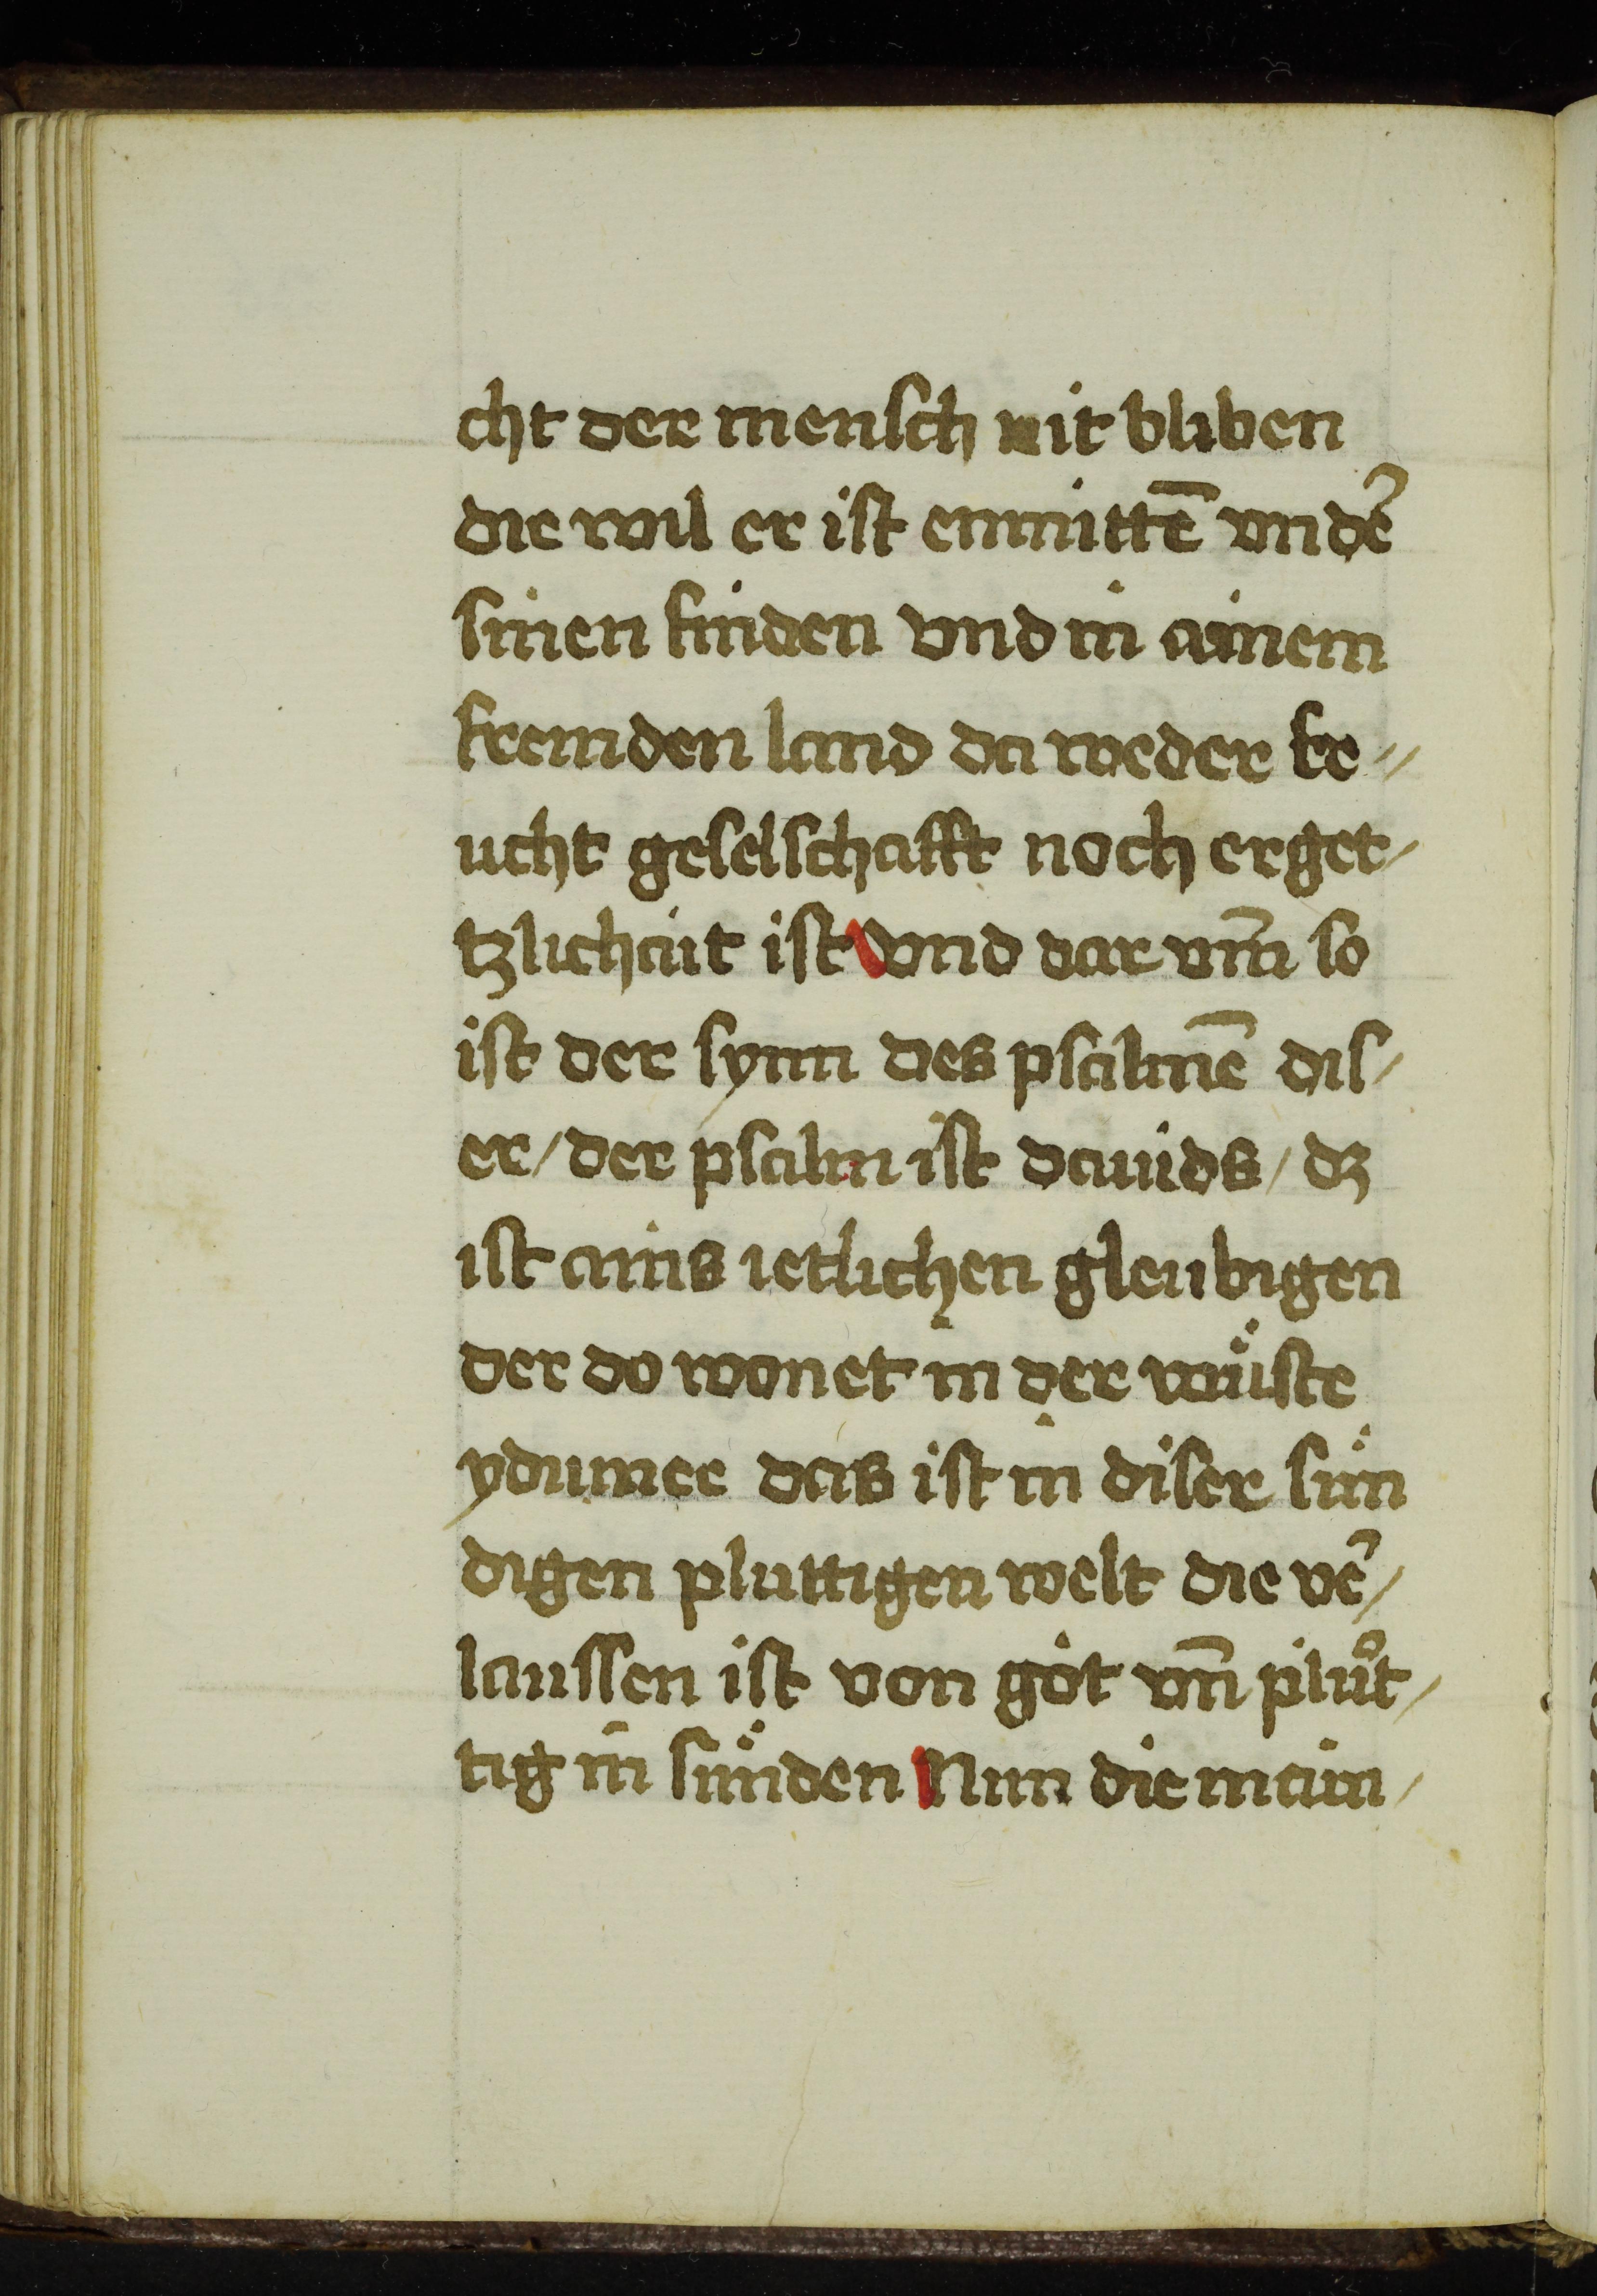 cht der mensch nit bliben
die wil er ist enmittē vnder̄
sinen finden vnd in ainem
fremden land da weder fr⸗
ucht geselschafft noch erget/
tzlichait ist Vnd dar vm̄ so
ist der synn des psalmē dis/
er/ der psalm ist dauids/ dz
ist ains ietlichen gleubigen
der do wonet in der wuͤste
ydumee das ist in diser suͤn
digen pluttigen welt die ver̄/
laussen ist von got vn̄ pluͦt/
tig in suͤnden Nun die main/